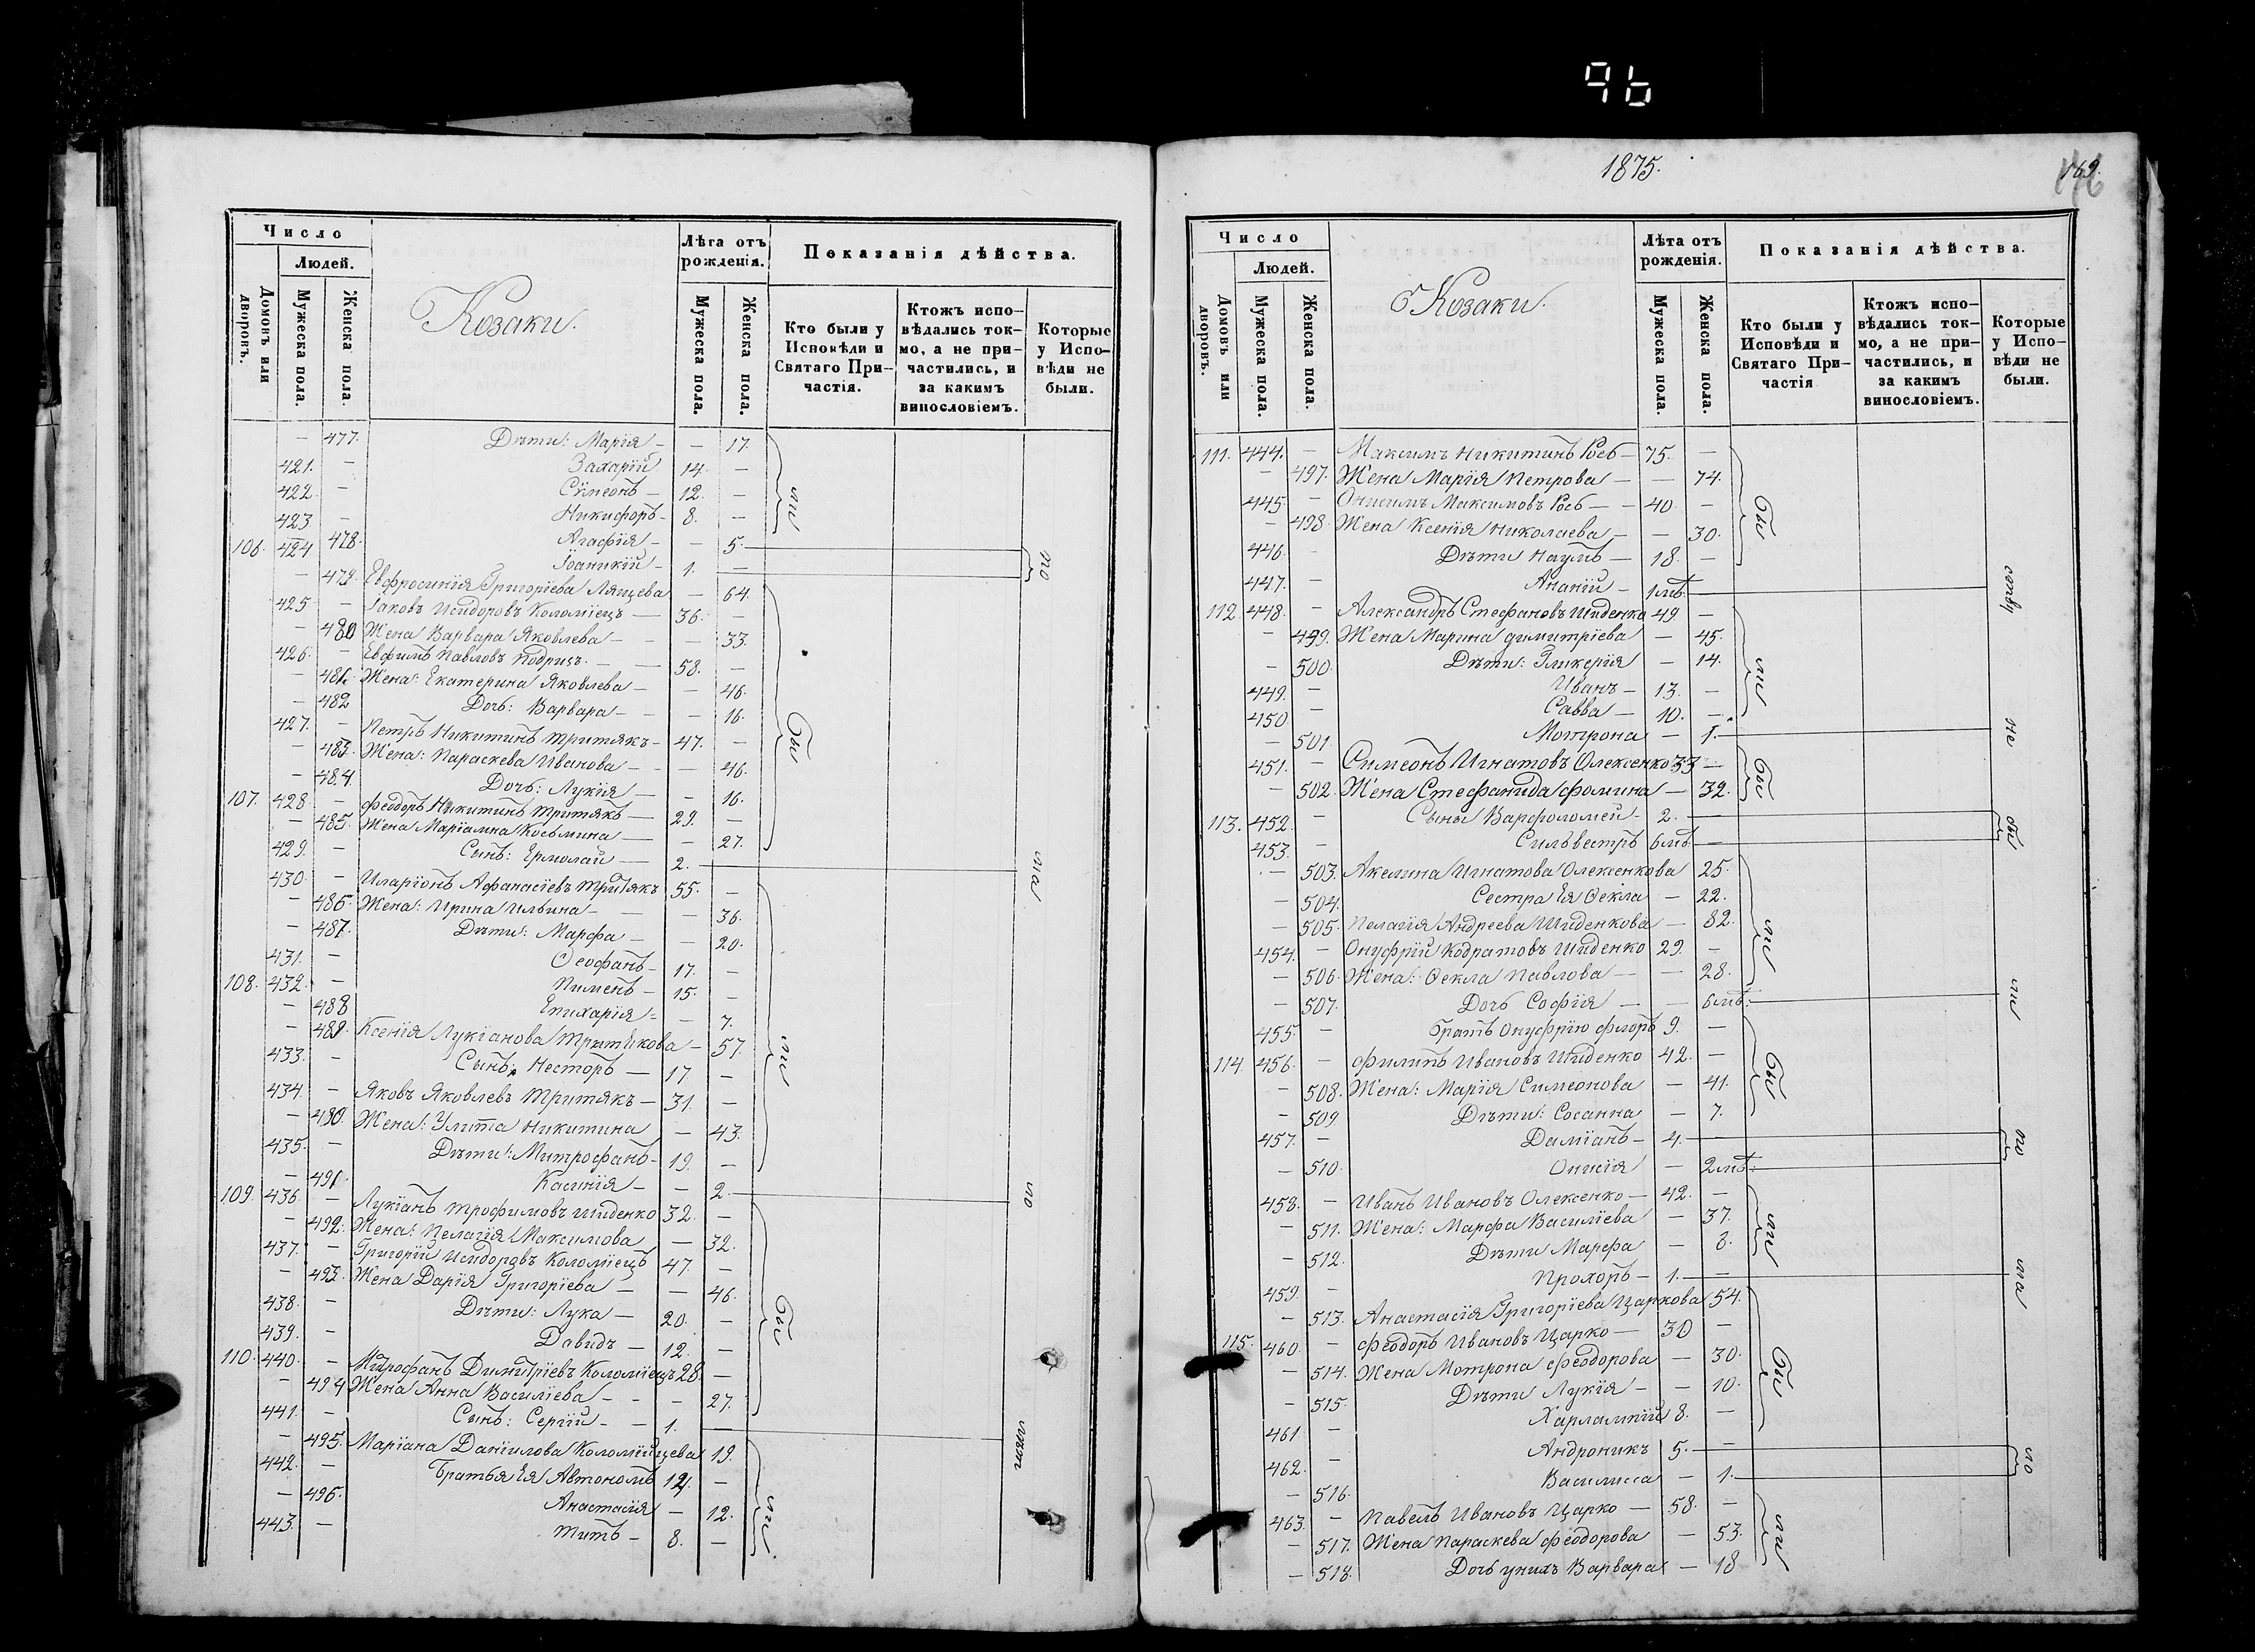 96
Число
Людей.
Домовъ или дворовъ.
Мужеска пола.
Женска пола.
Козаки.
Лѣта отъ рожденія.
Мужеска пола.
Женска пола.
Показанія дѣйства.
Кто были у Исповѣди и Святаго Причастія.
Ктожъ исповѣдались токмо, а не причастились, и за какимъ винословіемъ.
Которые у Исповѣди не были.
— 477. Дѣти: Марія — — 17.
421. — Захарій 14. —
422. — Сѵмеонъ — 12. —
423. — Никифоръ — 8. —
478. Агафія — — 5.
106. 424 Іоаникій — 1. —
— 479. Евфросинія Григоріева Лящева — 64.
425 — Іаковъ Исидоровъ Коломіецъ — 36. —
— 480 Жена Варвара Яковлева — — 33.
426. — Евфимъ Павловъ — 58. —
— 481. Жена: Екатерина Яковлева — — 46.
— 482 Дочь: Варвара — — 16.
427. — Петръ Никитинъ Тритякъ — 47. —
— 483. Жена: Параскева Иванова — — 46.
— 484 Дочь: Лукія — — 16.
107. 428. — Феодоръ Никитинъ Тритякъ — 29. —
— 485. Жена Маріамна Косьмина — — 27.
429. — Сынъ: Ермолай — 2.
430. — Иларіонъ Афанасіевъ Тритякъ 55. —
— 486. Жена: Ирина Ильина — — 36.
— 487. Дѣти: Марфа — — 20.
431. — Ѳеофанъ — 17. —
108. 432. — Пименъ — 15. —
— 488 Епихарія — — 7.
— 489. Ксенія Лукіанова Тритякова — 57.
433. — Сынъ Несторъ — 17. —
434. — Яковъ Яковлевъ Тритякъ — 31. —
— 490. Жена: Улита Никитина — 43.
435. — Дѣти: Митрофанъ — 19. —
— 491. Касинія — — 2.
109. 436 — Лукіанъ Трофимовъ Шиденко 32. —
— 492. Жена: Пелагія Максимова — 32.
437. — Григорій Исидоровъ Коломіецъ 47. —
— 493. Жена Дарія Григоріева — — 46.
438. — Дѣти: Лука — 20. —
439. — Давидъ — 12. —
110. 440. — Митрофанъ Димитріевъ Коломіецъ 28. —
— 494 Жена Анна Василіева — — 27.
441. — Сынъ: Сергій — 1. —
— 495. Маріана Даніилова Коломійцева 19.
442. — Братья Ея Автономъ 14. —
— 496. Анастасія — 12.
443. — Титъ — 8. —
бы
ли
на
ли
по
бы
ли
1875.
Число
Людей.
Домовъ или дворовъ.
Мужеска пола.
Женска пола.
Козаки.
Лѣта отъ рожденія.
Мужеска пола.
Женска пола.
Показанія дѣйства.
Кто были у Исповѣди и Святаго Причастія
Ктожъ исповѣдались токмо, а не причастились, и за какимъ винословіемъ.
Которые у Исповѣди не были.
111. 444. — Максимъ Никитинъ — 75. —
— 497. Жена Марія Петрова — — 74.
445. — Онисимъ Максимовъ — 40. —
— 498. Жена Ксенія Николаева — — 30.
446. — Дѣти Наумъ — 18. —
447. — Ананій — 1 мѣ.
112. 448. — Александръ Стефановъ Шиденко 49 —
— 499. Жена Марина Димитріева — 45.
— 500. Дѣти: Гликерія — 14.
449. — Иванъ — 13. —
450 — Савва — 10. —
— 501. Мотрона — 1.
451. — Симеонъ Игнатовъ Олексенко 33 —
— 502. Жена Стефанида Фомина — 32.
113. 452. — Сыны Варфоломей — 2.
453. — Сильвестръ 6 мѣ.
— 503. Акелина Игнатова Олексенкова 25.
— 504. Сестра Ея Ѳекла — 22.
— 505. Пелагія Андреева Шиденкова — 82.
454. — Онуфрій Кодратовъ Шиденко 29. —
— 506. Жена: Ѳекла Павлова — — 28.
— 507. Дочь Софія — — 6 мѣ.
455. — Братъ Онуфрію Флоръ 9. —
114. 456. — Филипъ Ивановъ Шиденко 42. —
— 508. Жена: Марія Симеонова — 41.
— 509. Дѣти: Сосанна — 7.
457. — Даміанъ — 4. —
— 510. Онисія — 2 мѣ.
458. — Иванъ Ивановъ Олексенко — 42. —
— 511. Жена: Марфа Василіева — 37.
— 512. Дѣти Марфа — 8.
459. — Прохоръ — 1. —
— 513. Анастасія Григоріева Царкова 54.
115. 460. — Феодоръ Ивановъ Царко — 30 —
— 514. Жена Мотрона Феодорова — 30.
— 515. Дѣти Лукія — — 10.
461. — Харлампій 8. —
462. — Андроникъ 5. —
— 516. Василисса — 1.
463. — Павелъ Ивановъ Царко — 58. —
— 517. Жена Параскева Феодорова — 53.
— 518. Дочь у нихъ Варвара — 18
бы
ли
не
бы
бы
ли
ли
бы
по
ли
бы
ли